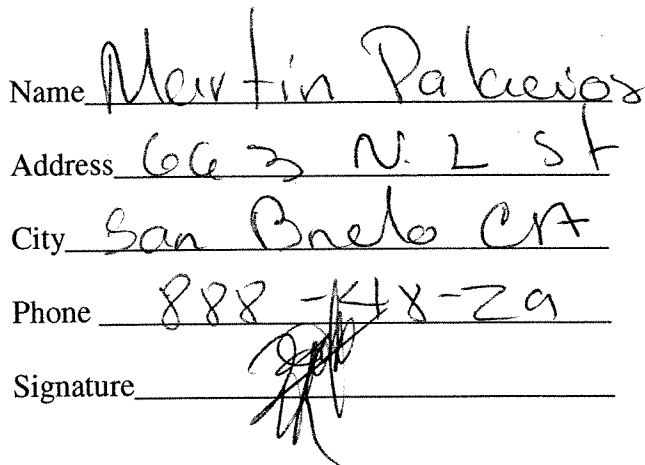 Name Martin Palacios
Address 663 N. L St
City San Brdo CA
Phone 888-48-29
Signature